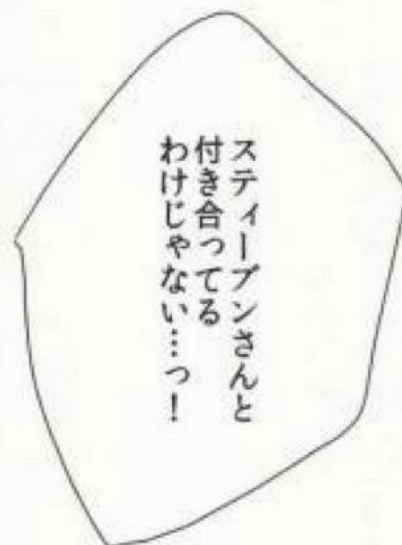 スティーブンさんと
付き合ってる
わけじゃない…っ！